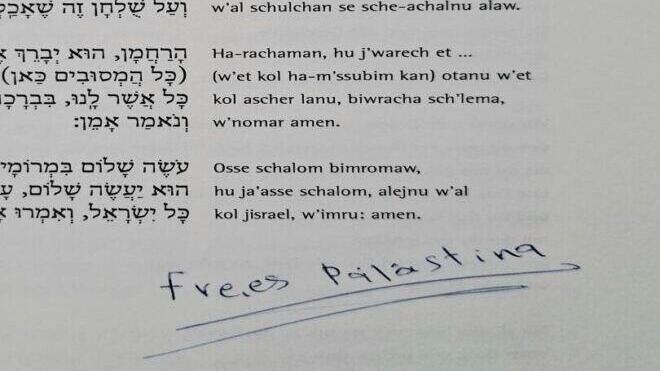 וְעַל שֻׁלְחָן זֶה שֶׁאָכַלְ w'al schulchan se sche-achalnu alaw.
הָרַחֲמָן, הוּא יְבָרֵךְ Ha-rachaman, hu j'warech et ...
(כָּל הַמְסוּבִּים כַּאן) (w'et kol ha-m'ssubim kan) otanu w'et
כָּל אֲשֶׁר לָֽנוּ, בִּבְרָכָ kol ascher lanu, biwracha sch'lema,
וְנֹאמַר אָמֵן: w'nomar amen.
עֹשֶׂה שָׁלוֹם בִּמְרוֹמָי Osse schalom bimromaw,
הוּא יַעֲשֶׂה שָׁלוֹם, עָ hu ja'asse schalom, alejnu w'al
כָּל יִשְׂרָאֵל, וְאִמְרוּ kol jisrael, w'imru: amen.
Freies Palästina